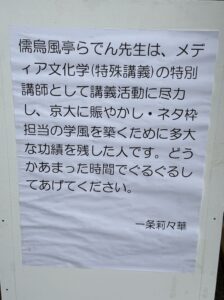 儒烏風亭らでん先生は、メデ
ィア文化学(特殊講義)の特別
講師として講義活動に尽力
し、京大に賑やかし・ネタ枠
担当の学風を築くために多大
な功績を残した人です。どう
かあまった時間でぐるぐるし
てあげてください。
一条莉々華